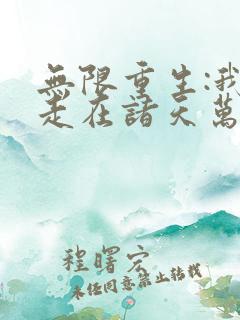 無限重生:我
走在諸天萬
程曙宏
未经同意禁止转载